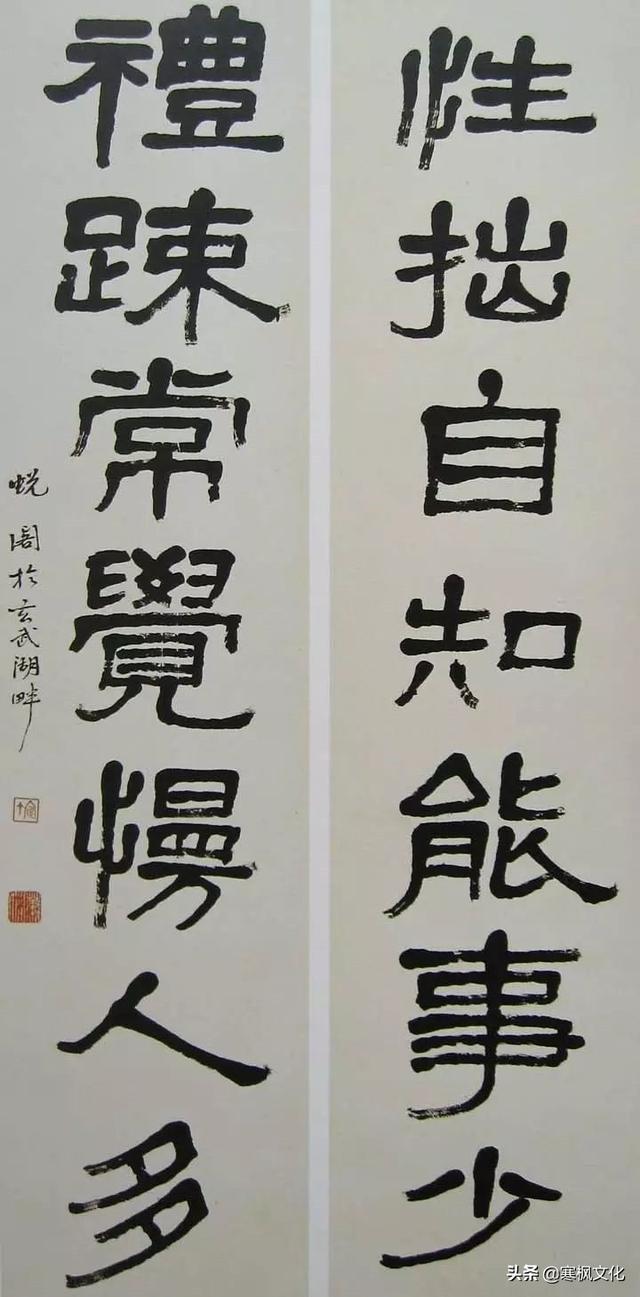 性拙自知能事少
禮踈常覺慢人多
蜕闇於玄武湖畔
头条 @寒枫文化